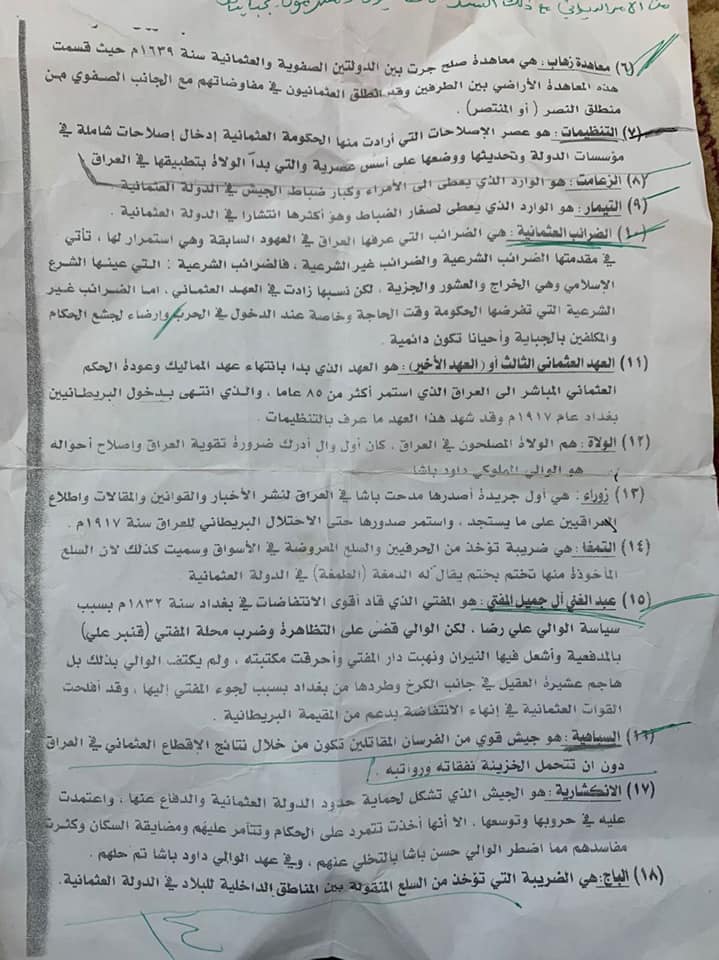 من الامر الديواني
(٦) معاهدة زهاب : هي معاهدة صلح جرت بين الدولتين الصفوية والعثمانية سنة ١٦٣٩م حيث قسمت
هذه المعاهدة الأراضي بين الطرفين وقد انطلق العثمانيون في مفاوضاتهم مع الجانب الصفوي من
منطلق النصر ( أو المنتصر) .
(٧) التنظيمات : هو عصر الإصلاحات التي أرادت منها الحكومة العثمانية إدخال إصلاحات شاملة في
مؤسسات الدولة وتحديثها ووضعها على أسس عصرية والتي بدأ الولاة بتطبيقها في العراق
(٨) الزعامت : هو الوارد الذي يعطى الى الأمراء وكبار ضباط الجيش في الدولة العثمانية
(٩) التيمار : هو الوارد الذي يعطى لصغار الضباط وهو أكثرها انتشارا في الدولة العثمانية .
(١٠) الضرائب العثمانية : هي الضرائب التي عرفها العراق في العهود السابقة وهي استمرار لها ، تأتي
في مقدمتها الضرائب الشرعية والضرائب غير الشرعية ، فالضرائب الشرعية : التي عينها الشرع
الإسلامي وهي الخراج والعشور والجزية ، لكن نسبها زادت في العهد العثماني ، اما الضرائب غير
الشرعية التي تفرضها الحكومة وقت الحاجة وخاصة عند الدخول في الحرب وإرضاء لجشع الحكام
والمكلفين بالجباية وأحيانا تكون دائمية .
(١١) العهد العثماني الثالث أو( العهد الأخير) : هو العهد الذي بدا بانتهاء عهد المماليك وعودة الحكم
العثماني المباشر الى العراق الذي استمر أكثر من ٨٥ عاما ، والذي انتهى بدخول البريطانيين
بغداد عام ١٩١٧م وقد شهد هذا العهد ما عرف بالتنظيمات .
(١٢) الولاة : هم الولاة المصلحون في العراق ، كان أول وال أدرك ضرورة تقوية العراق وإصلاح أحواله
هو الوالي المملوكي داود باشا
(١٣) زوراء : هي أول جريدة أصدرها مدحت باشا في العراق لنشر الأخبار والقوانين والمقالات واطلاع
العراقيين على ما يستجد ، واستمر صدورها حتى الاحتلال البريطاني للعراق سنة ١٩١٧م .
(١٤) التمغا : هي ضريبة تؤخذ من الحرفيين والسلع المعروضة في الأسواق وسميت كذلك لان السلع
المأخوذة منها تختم بختم يقال له الدمغة (الطمغة) في الدولة العثمانية
(١٥) عبد الغني آل جميل المفتي : هو المفتي الذي قاد أقوى الانتفاضات في بغداد سنة ١٨٣٢م بسبب
سياسة الوالي علي رضا ، لكن الوالي قضى على التظاهرة وضرب محلة المفتي (قنبر علي)
بالمدفعية وأشعل فيها النيران ونهبت دار المفتي وأحرقت مكتبته ، ولم يكتف الوالي بذلك بل
هاجم عشيرة العقيل في جانب الكرخ وطردها من بغداد بسبب لجوء المفتي إليها ، وقد أفلحت
القوات العثمانية في إنهاء الانتفاضة بدعم من المقيمة البريطانية .
(١٦) السباهية : هو جيش قوي من الفرسان المقاتلين تكون من خلال نتائج الإقطاع العثماني في العراق
دون ان تتحمل الخزينة نفقاته ورواتبه .
(١٧) الانكشارية : هو الجيش الذي تشكل لحماية حدود الدولة العثمانية والدفاع عنها ، واعتمدت
عليه في حروبها وتوسعها ، الا أنها أخذت تتمرد على الحكام وتتآمر عليهم ومضايقة السكان وكثرت
مفاسدهم مما اضطر الوالي حسن باشا بالتخلي عنهم ، وفي عهد الوالي داود باشا تم حلهم .
(١٨) الباج: هي الضريبة التي تؤخذ من السلع المنقولة بين المناطق الداخلية للبلاد في الدولة العثمانية .